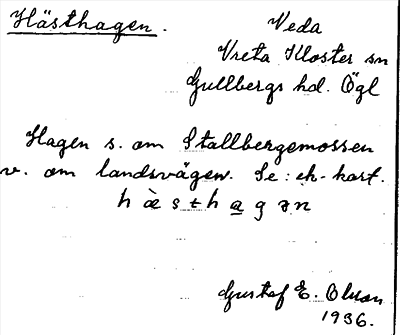 Hästhagen.
Veda
Vreta Kloster sn
Gullbergs hd. Ögl
Hagen s. om Stallbergemossen
v. om landsvägen. Se: ek-kart.
h æ̀ s t h a g ə n
Gustaf E. Olsson
1936.